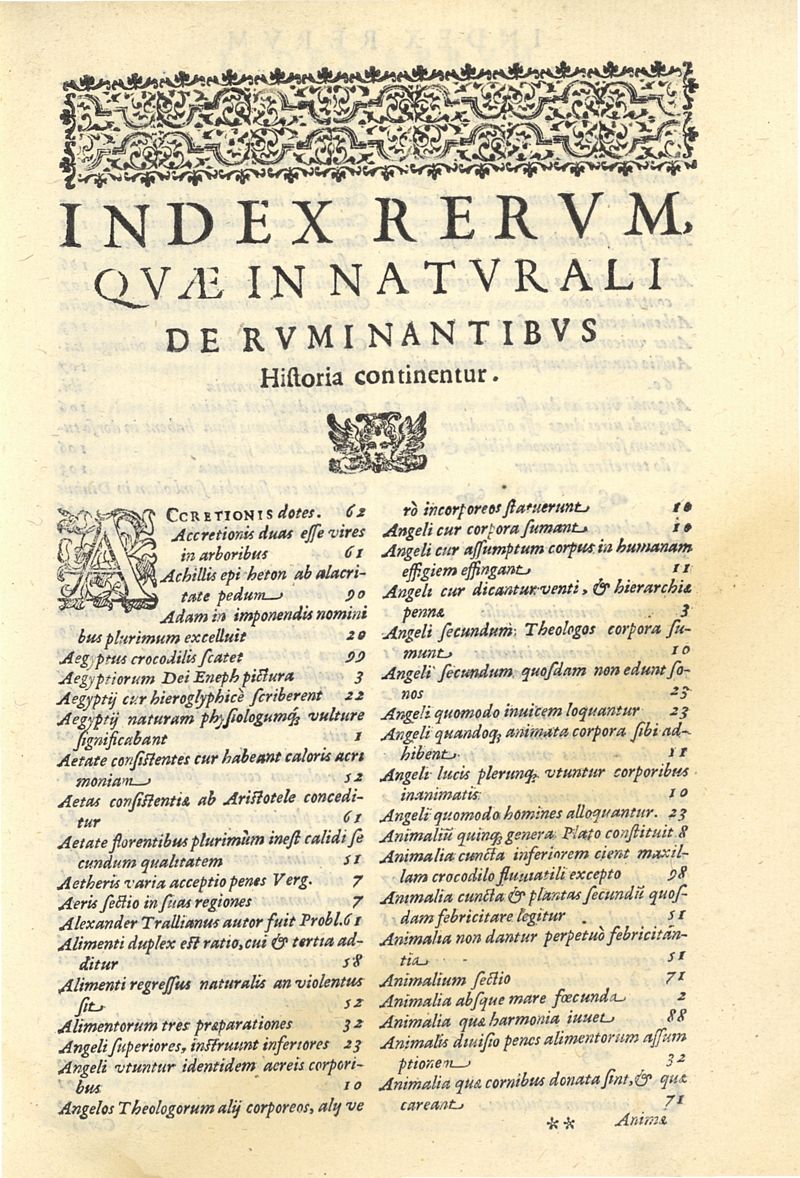 INDEX RERVM,
QVÆ IN NATVRALI
DE RVMINANTIBVS
Hiſtoria continentur.
ACCRETIONIS dotes. 62
Accretionis duas eſſe vires
in arboribus 61
Achillis epiheton ab alacri-
tate pedum 90
Adam in imponendis nomini
bus plurimum excelluit 20
Aegyptus crocodilis ſcatet 99
Aegyptiorum Dei Eneph pictura 3
Aegyptij cur hieroglyphicè ſcriberent 22
Aegyptij naturam phyſiologumq́; vulture
ſignificabant 1
Aetate conſiſtentes cur habeant caloris acri
moniam 52
Aetas conſiſtentiæ ab Ariſtotele concedi-
tur 61
Aetate florentibus plurimùm ineſt calidi ſe
cundum qualitatem 51
Aetheris varia acceptio penes Verg. 7
Aeris ſectio in ſuas regiones 7
Alexander Trallianus autor fuit Probl. 61
Alimenti duplex eſt ratio, cui & tertia ad-
ditur 58
Alimenti regreſſus naturalis an violentus
ſit 52
Alimentorum tres præparationes 32
Angeli ſuperiores, inſtruunt inferiores 23
Angeli vtuntur identidem aereis corpori-
bus 10
Angelos Theologorum alij corporeos, alij ve
rò incorporeos ſtatuerunt 10
Angeli cur corpora ſumant 10
Angeli cur aſſumptum corpus in humanam
effigiem effingant 11
Angeli cur dicantur venti, & hierarchiæ
pennæ 3
Angeli ſecundum Theologos corpora ſu-
munt 10
Angeli ſecundum quoſdam non edunt ſo-
nos 23
Angeli quomodo inuicem loquantur 23
Angeli quandoq; animata corpora ſibi ad-
hibent 11
Angeli lucis plerunq; vtuntur corporibus
inanimatis 10
Angeli quomodo homines alloquantur. 23
Animaliũ quinq; genera Plato conſtituit 8
Animalia cuncta inferiorem cient maxil-
lam crocodilo fluuiatili excepto 98
Animalia cuncta & plantas ſecundũ quoſ-
dam febricitare legitur 51
Animalia non dantur perpetuò febricitán-
tia 51
Animalium ſectio 71
Animalia abſque mare fœcunda 2
Animalia quæ harmonia iuuet 88
Animalis diuiſio penes alimentorum aſſum
ptionem 32
Animalia quæ cornibus donata ſint, & quæ
careant 71
** Animæ